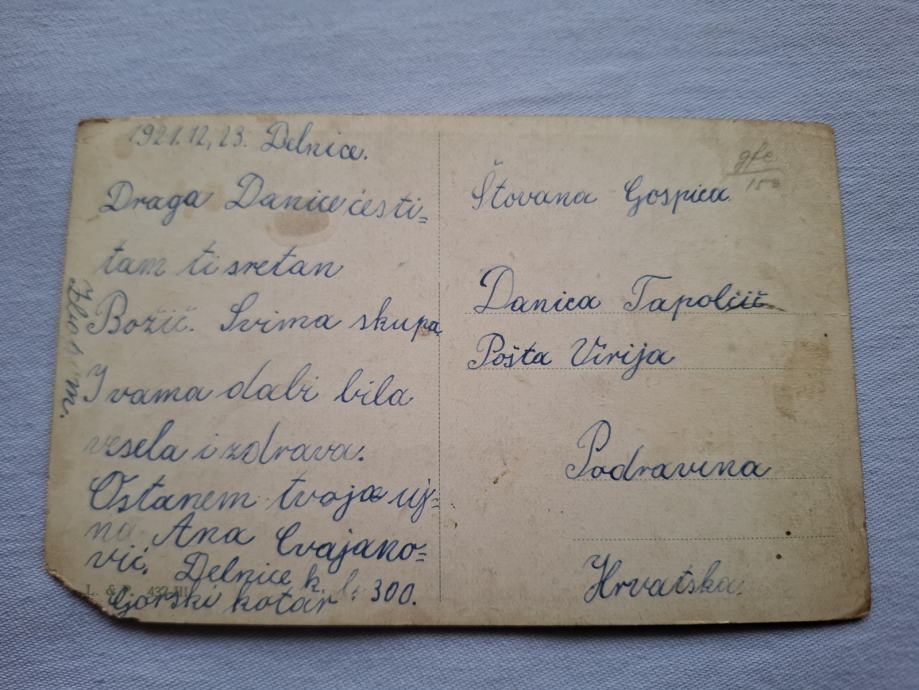 1921.12,23. Delnice.
Draga Danice česti=
tam ti sretan
Božić. Svima skupa
I vama dabi bila
vesela i zdrava.
Ostanem tvoja uj=
na Ana Cvajano=
vić. Delnice k. b. 300.
Gorski kotar
L. & P. 433 III
Štovana Gospica
Danica Tapolčić
Pošta Virija
Podravina
Hrvatska.